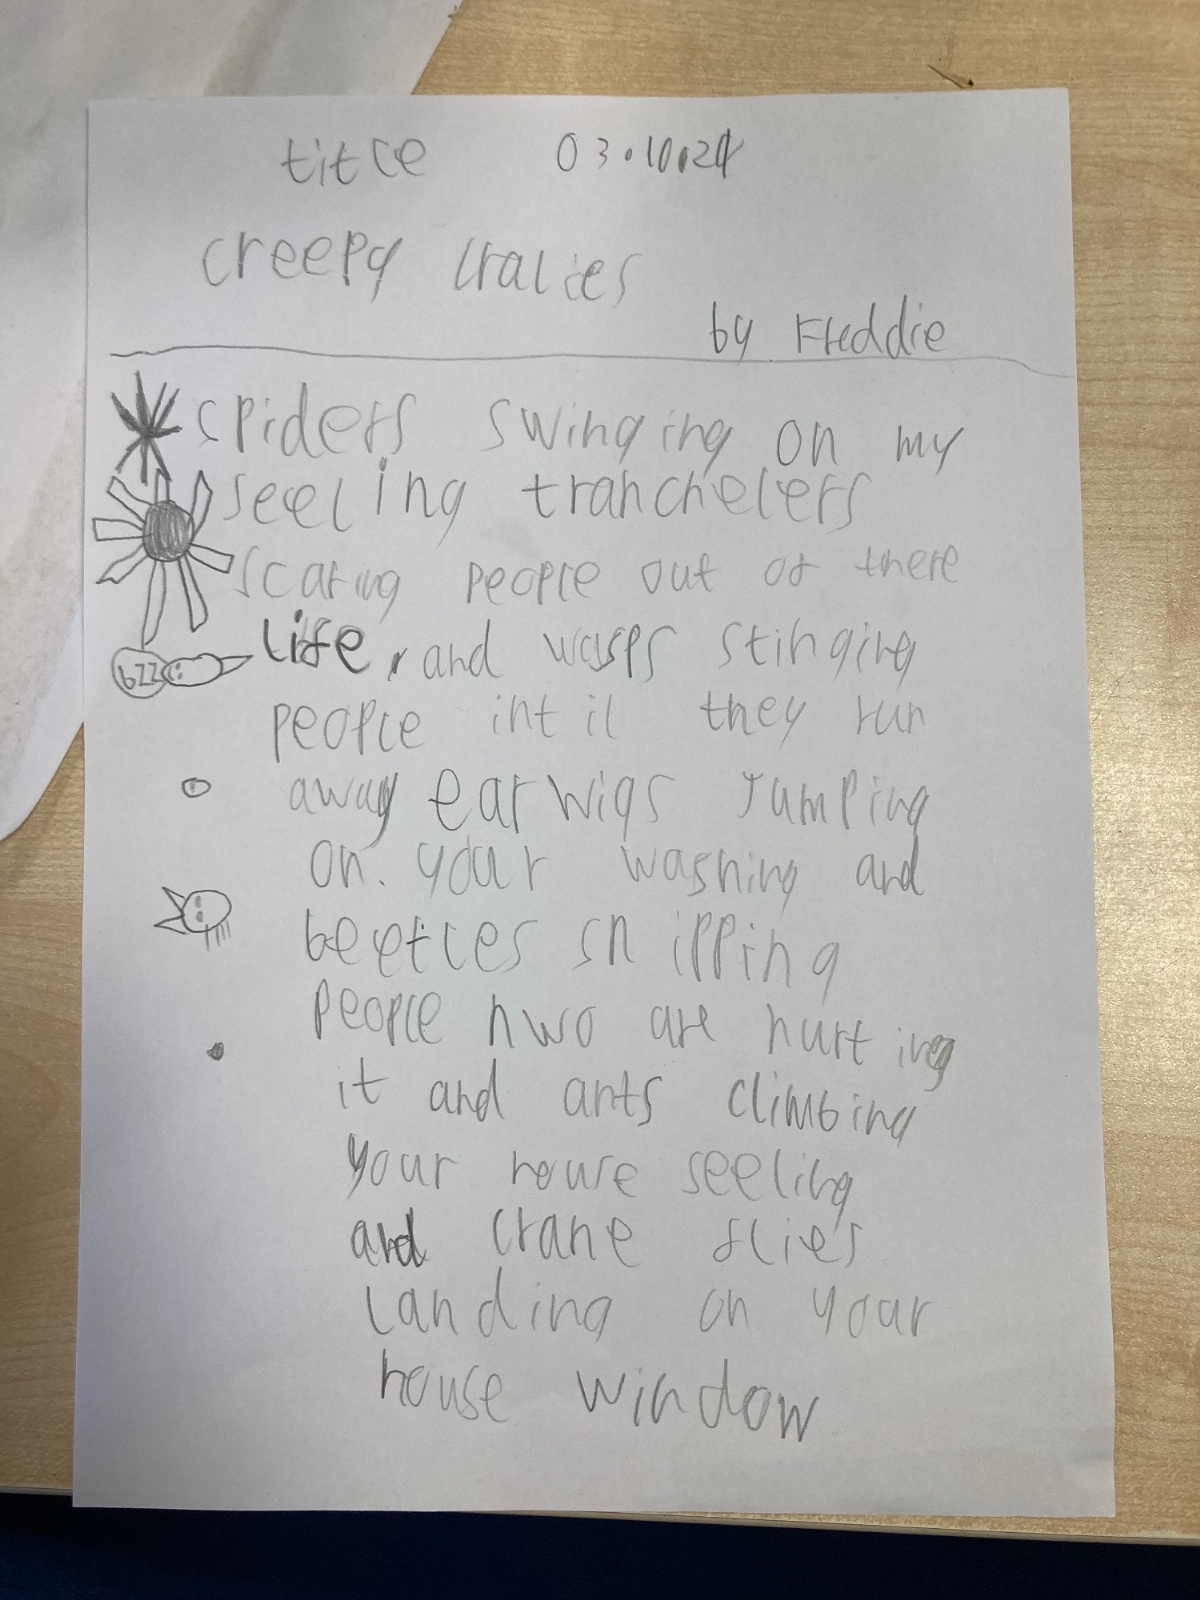 title 03.10.24
creepy cralies
by Freddie
spiders swinging on my
seeling tranchelers
scaring people out of there
life, and wasps stinging
bzz
people intil they run
away earwigs jumping
on. your washing and
beetles snipping
people hwo are hurting
it and ants climbing
your house seeling
and crane flies
landing on your
house window